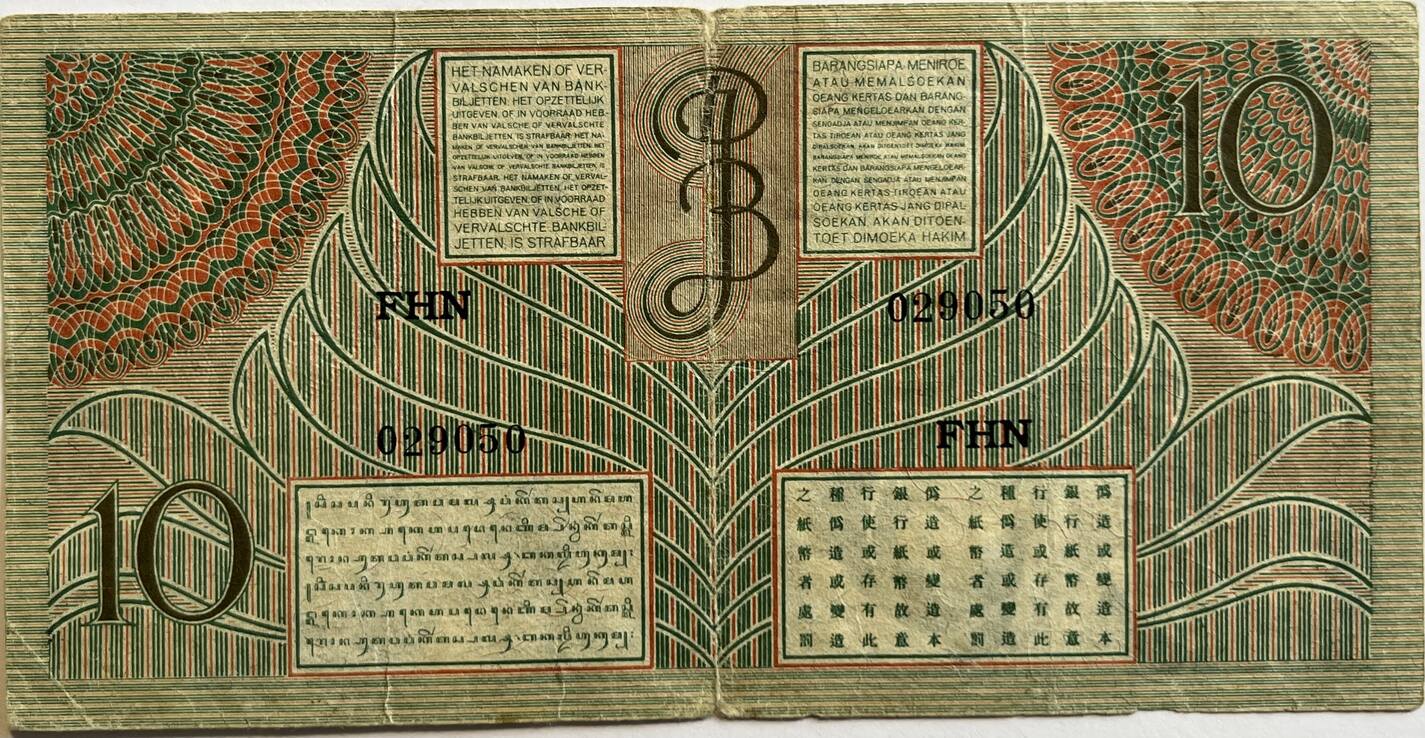 HET NAMAKEN OF VER-
VALSCHEN VAN BANK-
BILJETTEN, HET OPZETTELIJK
UITGEVEN, OF IN VOORRAAD HEB-
BEN VAN VALSCHE OF VERVALSCHTE
BANKBILJETTEN, IS STRAFBAAR. HET NA-
MAKEN OF VERVALSCHEN VAN BANKBILJETTEN, HET
OPZETTELIJK UITGEVEN, OF IN VOORRAAD HEBBEN
VAN VALSCHE OF VERVALSCHTE BANKBILJETTEN, IS
STRAFBAAR. HET NAMAKEN OF VERVAL-
SCHEN VAN BANKBILJETTEN, HET OPZET-
TELIJK UITGEVEN, OF IN VOORRAAD
HEBBEN VAN VALSCHE OF
VERVALSCHTE BANKBIL-
JETTEN, IS STRAFBAAR
JB
BARANGSIAPA MENIROE
ATAU MEMALSOEKAN
OEANG KERTAS DAN BARANG-
SIAPA MENGELOEARKAN DENGAN
SENGADJA ATAU MENJIMPAN OEANG KER-
TAS TIROEAN ATAU OEANG KERTAS JANG
DIPALSOEKAN AKAN DITOENTOET DIMOEKA HAKIM.
BARANGSIAPA MENIROE ATAU MEMALSOEKAN OEANG
KERTAS DAN BARANGSIAPA MENGELOEAR-
KAN DENGAN SENGADJA ATAU MENJIMPAN
OEANG KERTAS TIROEAN ATAU
OEANG KERTAS JANG DIPAL
SOEKAN AKAN DITOEN-
TOET DIMOEKA HAKIM
10
FHN
029050
029050
FHN
10
僞造或變造本
銀行紙幣故意
行使或存有此
種僞造或變造
之紙幣者處罰
僞造或變造本
銀行紙幣故意
行使或存有此
種僞造或變造
之紙幣者處罰